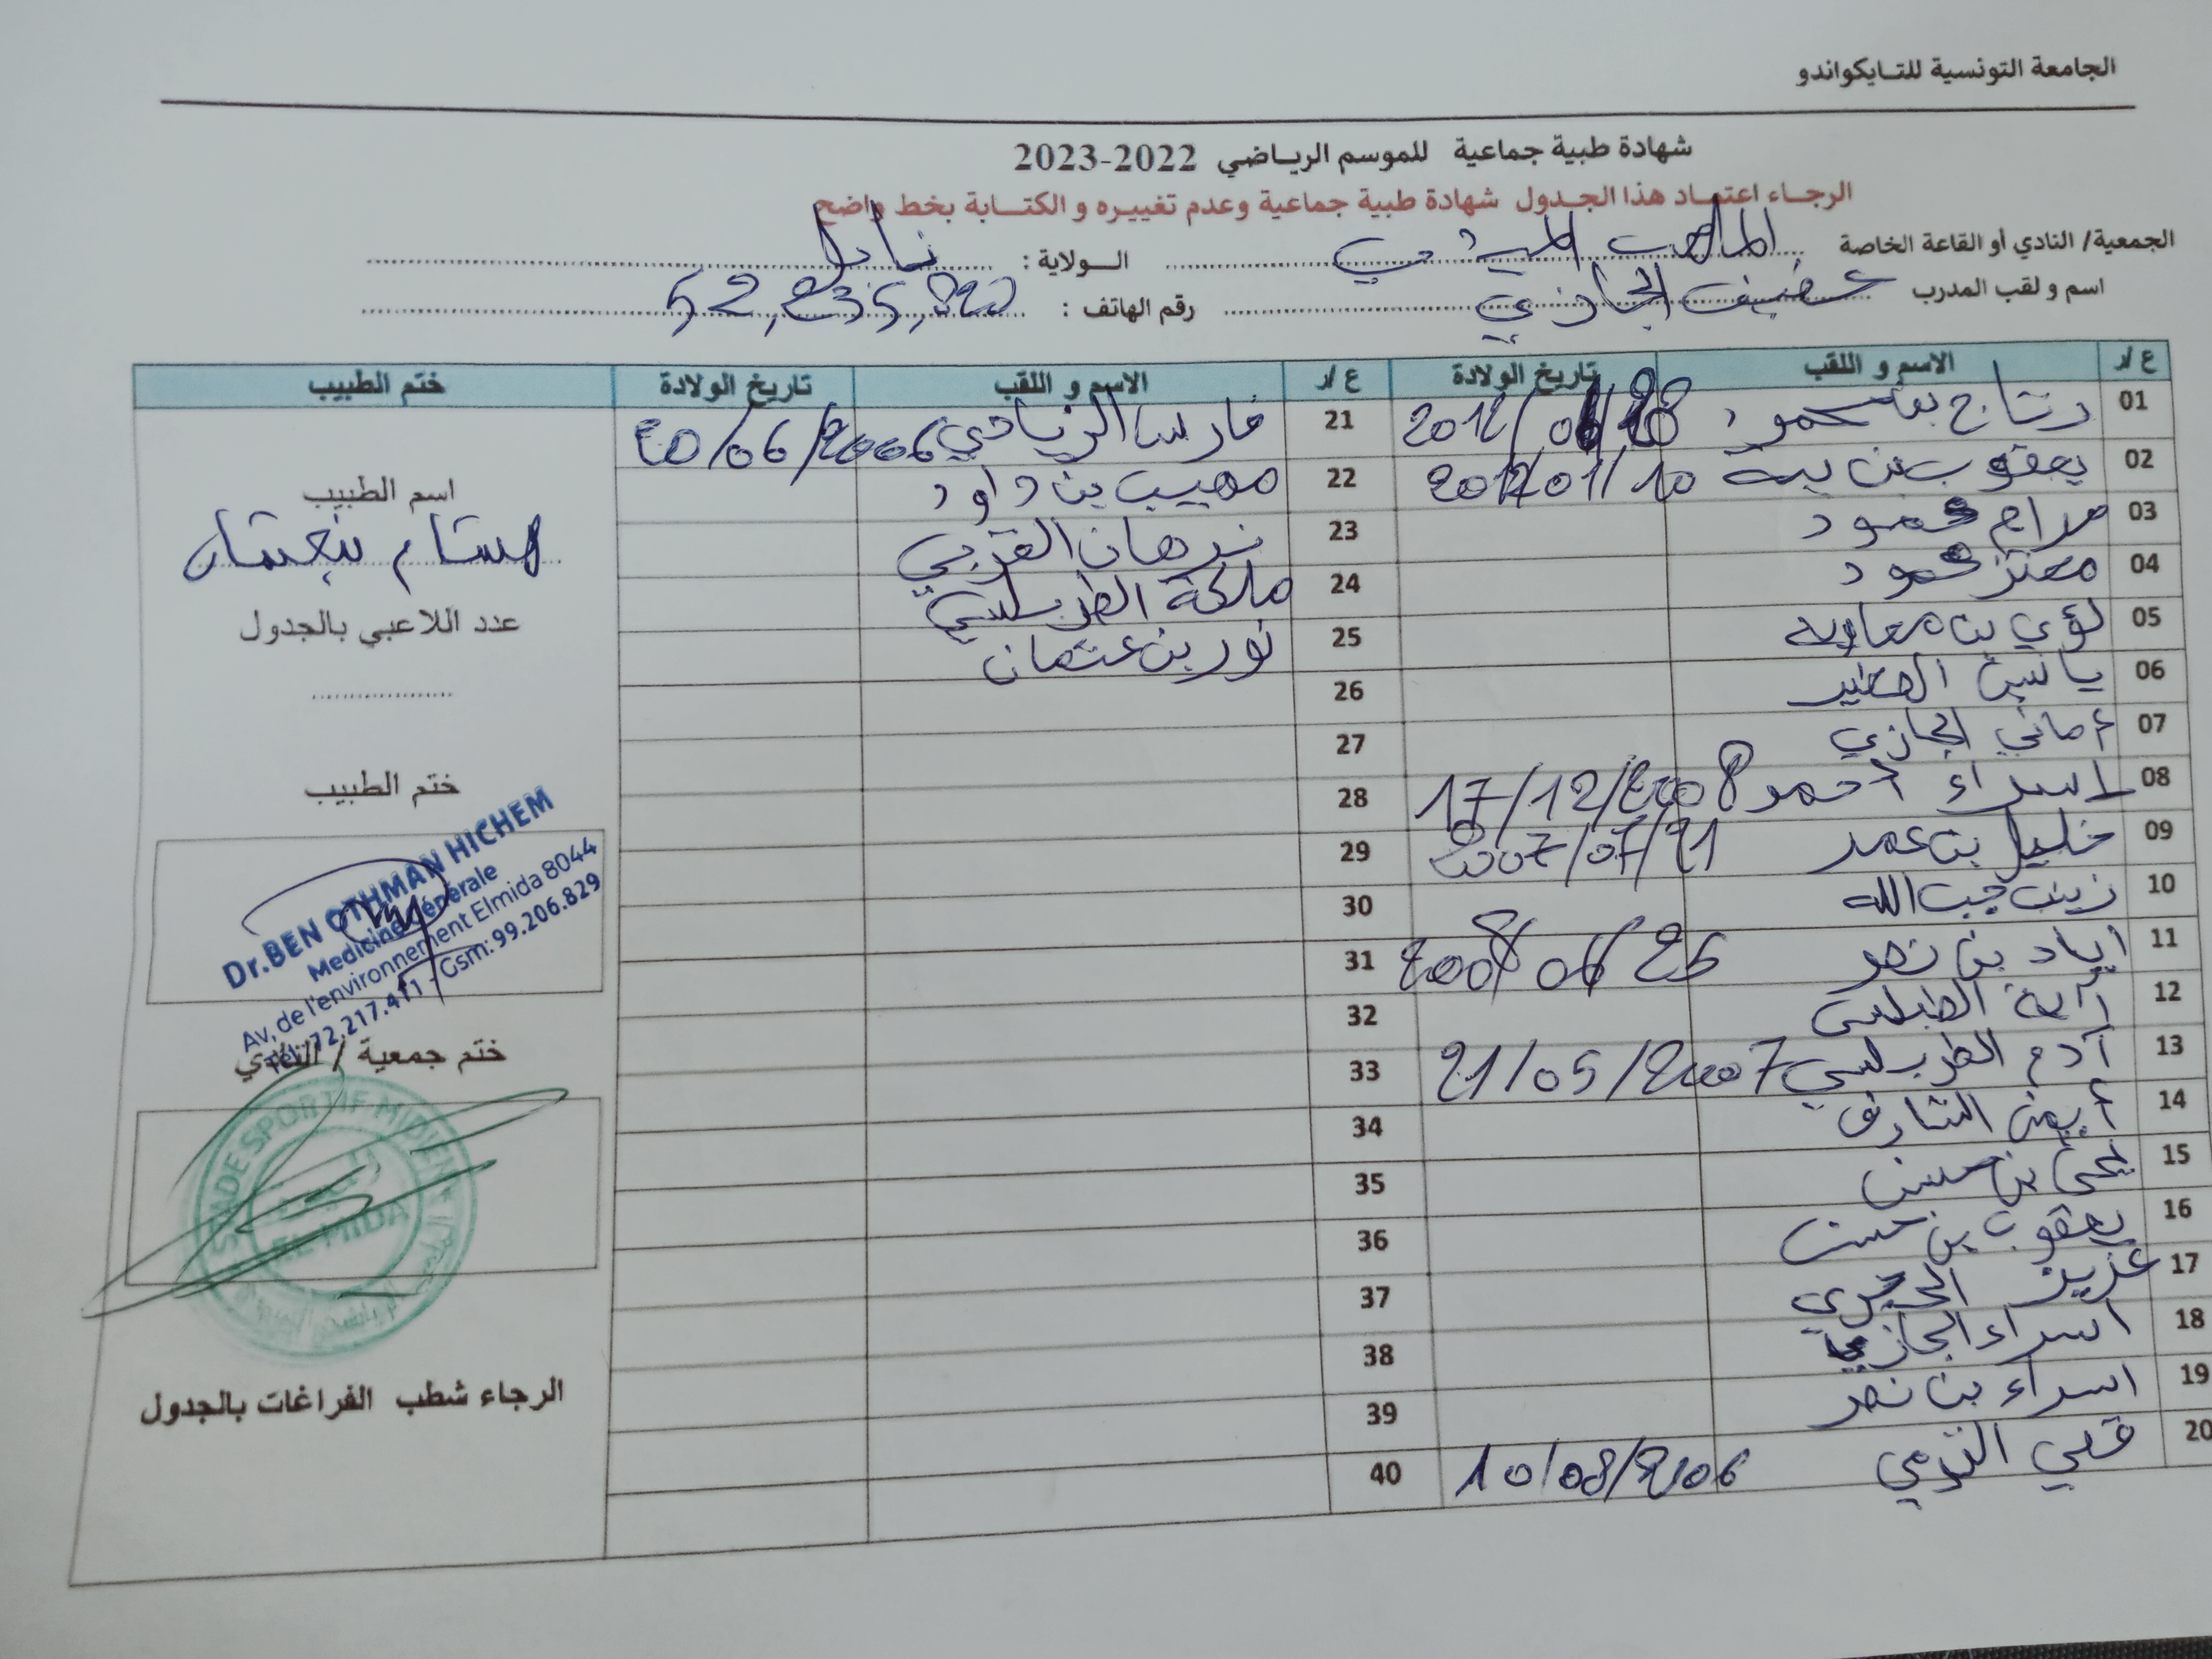 الجامعة التونسية للتايكواندو
شهادة طبية جماعية للموسم الرياضي 2022-2023
الرجاء اعتماد هذا الجدول شهادة طبية جماعية وعدم تغييره و الكتابة بخط واضح
الجمعية/ النادي أو القاعة الخاصة الملعب الميدي الولاية : نابل
اسم و لقب المدرب الحجازي رقم الهاتف : 52,235,820
ع/ر الاسم و اللقب تاريخ الولادة ع/ر الاسم و اللقب تاريخ الولادة ختم الطبيب
01 رتاج بن حمودة 2012/ 21 فارس الزيادي 20/06/2006
02 يعقوب بن بية 2012/01/10 22 مهيب بن داود
03 مرام محمود 23 نرهان القزبي
04 معتز محمود 24 ملكة الطربلسي
05 لؤي بن معاوية 25 نور بن عثمان
06 ياسين 26
07 أماني الحجازي 27
08 اسراء أحمد 17/12/2008 28
09 خليل بن عمر 2007/07/21 29
10 زينب جب الله 30
11 اياد بن نصر 2008/06/26 31
12 آية الطربلسي 32
13 آدم الطربلسي 21/05/2007 33
14 أيمن الشارف 34
15 يحي بن حسين 35
16 يعقوب بن حسن 36
17 عزيز الحجري 37
18 اسراء الحجازي 38
19 اسراء بن نصر 39
20 قصي التومي 10/08/2006 40
اسم الطبيب
هشام بن عثمان
عدد اللاعبي بالجدول
ختم الطبيب
Dr.BEN OTHMAN HICHEM
Medicine Générale
Av, de l'environnement Elmida 8044
Tél: 72.217.411 - Gsm: 99.206.829
ختم جمعية / النادي
STADE SPORTIF MIDIEN
EL MIDA
الرجاء شطب الفراغات بالجدول